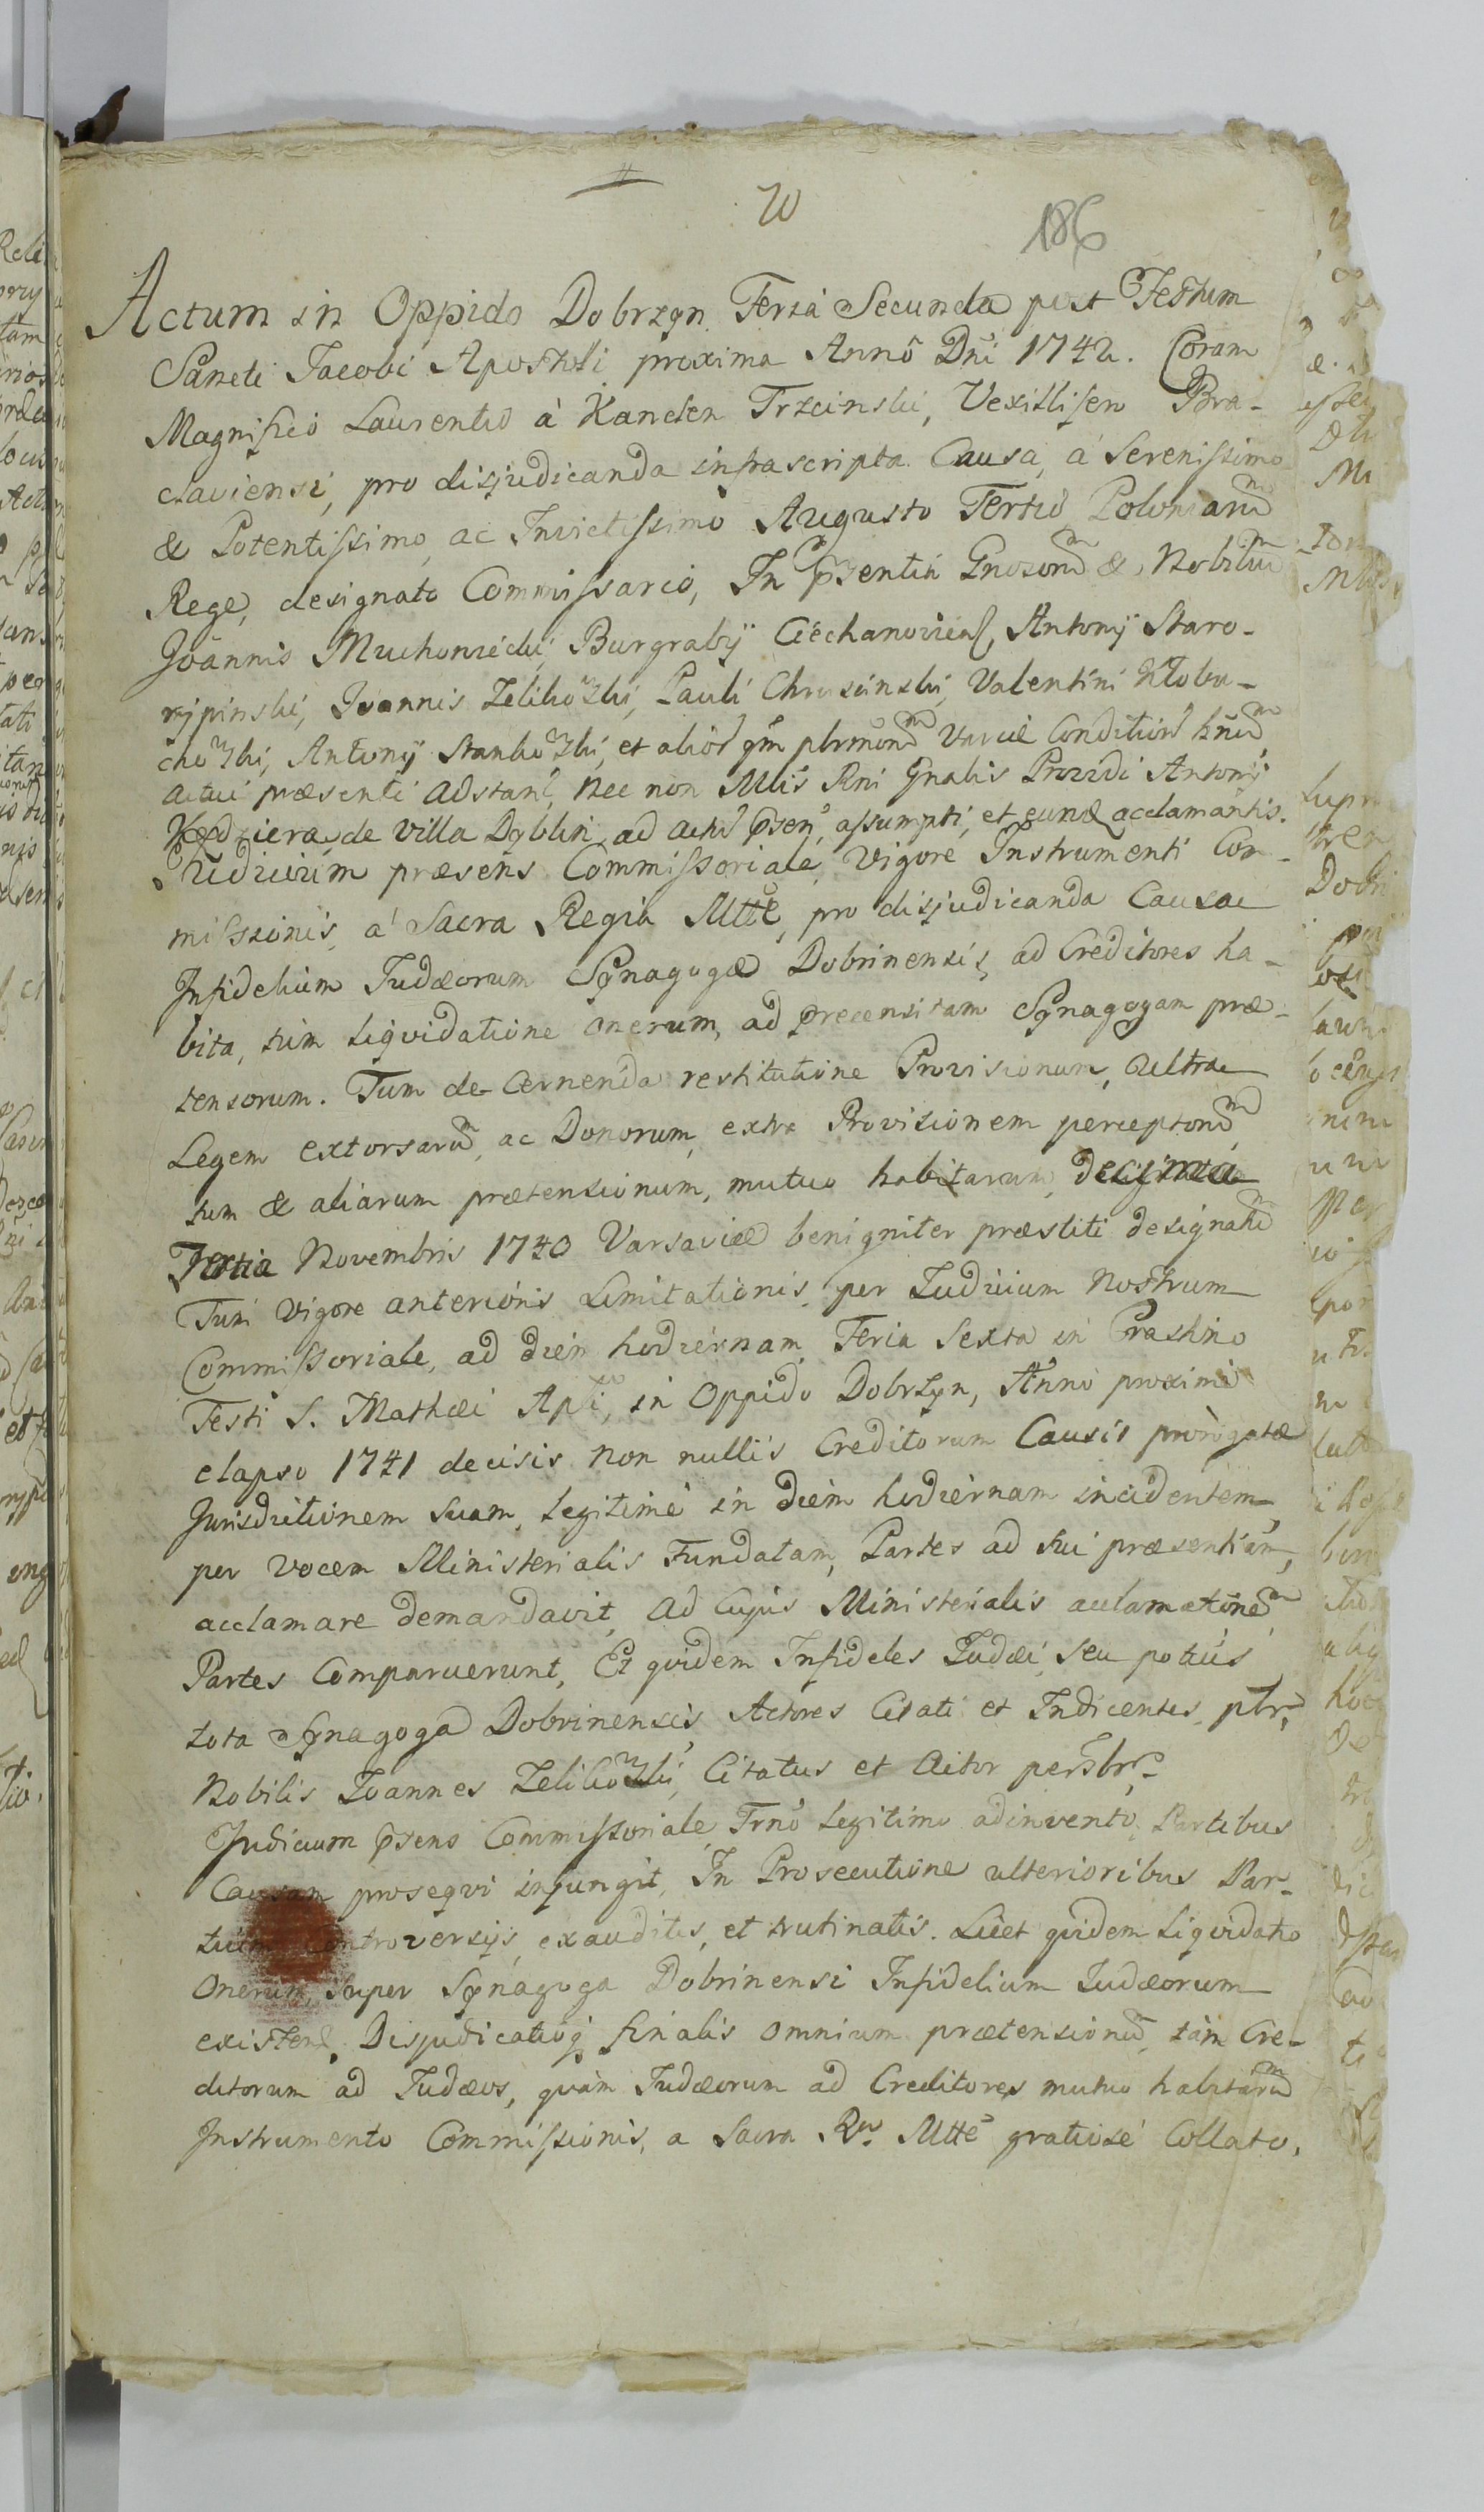 20
186
Actum in Oppido Dobrzyn Feria Secunda post Festum
Sancti Jacobi Apostoli proxima Annô Dni 1742. Coram
Magnifico Laurentio à Kanden Trzcinski, Vexillifero Bra-
claviensi, pro disjudicanda infrascripta Causa, á Serenissimo
& Potentissimo, ac Invictissimo Augusto Tertio Poloniarum
Rege, designato Commissario, In Psentia Gnosorum & Nobilium
Joannis Muchowiecki, Burgrabÿ Ciechanoviens, Antonÿ Staro-
rypinski, Joannis Zelihozki, Pauli Chruscinski, Valentini Klobu-
chozki, Antonÿ Stankozki, et alior qm plrmorum variæ Condition hnium
actui præsenti adstan, nec non Mlis Rni Gnalis Providi Antonÿ
Kędziera de Villa Dyblin ad actu Psen, assumpti, et eund acclamantis.
Judicium præsens Commissoriale, Vigore Instrumenti Com-
missionis, a Sacra Regia Mtte, pro disjudicanda Causa
Infidelium Judæorum Synagogæ Dobrinensis, ad Creditores ha-
bita, tum liqvidatione onerum, ad Precensitam Synagogam præ-
tensorum. Tum de cernenda restitutione Provisionum, ultra
Legem extorsarum, ac Donorum, extra Provisionem perceptorum,
tum & aliarum prætensionum, mutuo habitarum, decima
Tertia Novembris 1740 Varsaviæ benigniter præstiti designati
Tum vigore anterioris Limitationis, per Judicium Nostrum
Commissoriale, ad diem hodiernam, Feria Sexta in Crastino
Festi S. Mathæi Apli, in Oppido Dobrzyn, Anno proxime
elapso 1741 decisis non nullis Creditorum Causis prorogatæ
Jurisdictionem suam, legitime in diem hodiernam incidentem,
per vocem Ministerialis Fundatam, Partes ad sui præsentiam,
acclamare demandavit, Ad Cujus Ministerialis acclamationem
Partes Comparuerunt, Et qvidem Infideles Judæi, seu potius
tota Synagoga Dobrinensis, Actores Citati et Indicentes, plr,
Nobilis Joannes Zelihozki, Citatus et Actor persblr
Judicium Psens Commissoriale Trno legitimo adinvento, Partibus
Causam proseqvi injungit, In Prosecutione ulterioribus Par-
tium Controversÿs, exauditis, et trutinatis. Licet qvidem Liqvidatio
Onerum, super Synagoga Dobrinensi Infidelium Judæorum
existen, Disjudicatioq finalis omnium prætensionum, tam Cre-
ditorum ad Judæos, qvam Judæorum ad Creditores mutuo habitarum
Instrumento Commissionis, a Sacra Ra Mtte gratiose Collato,